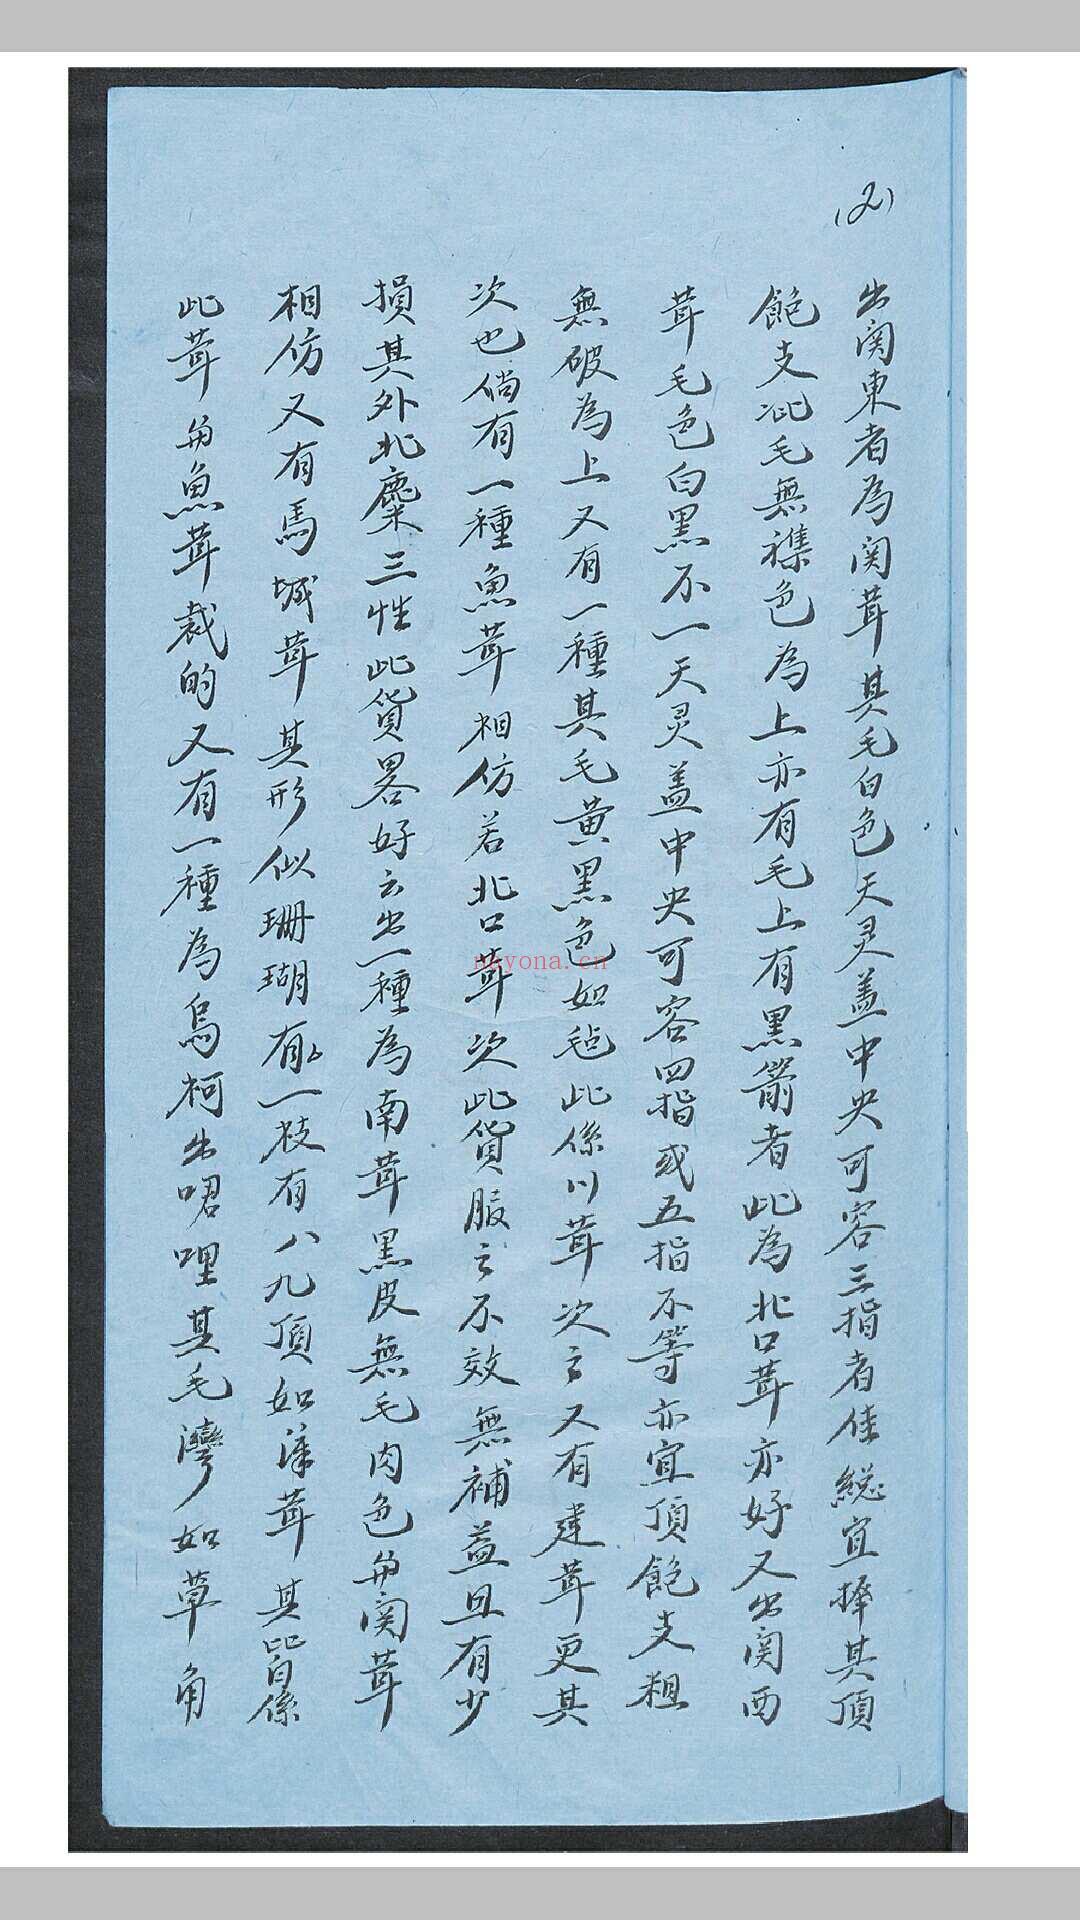 (2)
出関東者為関茸其毛白色天灵盖中央可容三指者佳総宜择其頂
飽支毛無襍色為上亦有毛上有黑箭者此為北口茸亦好又出関西
茸毛色白黑不一天灵盖中央可容四指或五指不等亦宜頂飽支粗
無破為上又有一種其毛黄黑色如毡此係川茸次之又有建茸更其
次也倘有一種魚茸相仿若北口茸次此貨服之不效無補益且有少
損其外北麋三性此貨畧好云出一種為南茸黑皮無毛肉色与関茸
相仿又有馬城茸其形似珊瑚有一枝有八九頂如茸其皆係
此茸与魚茸裁的又有一種為烏柯出哩其毛灣如草角
nayona.cn